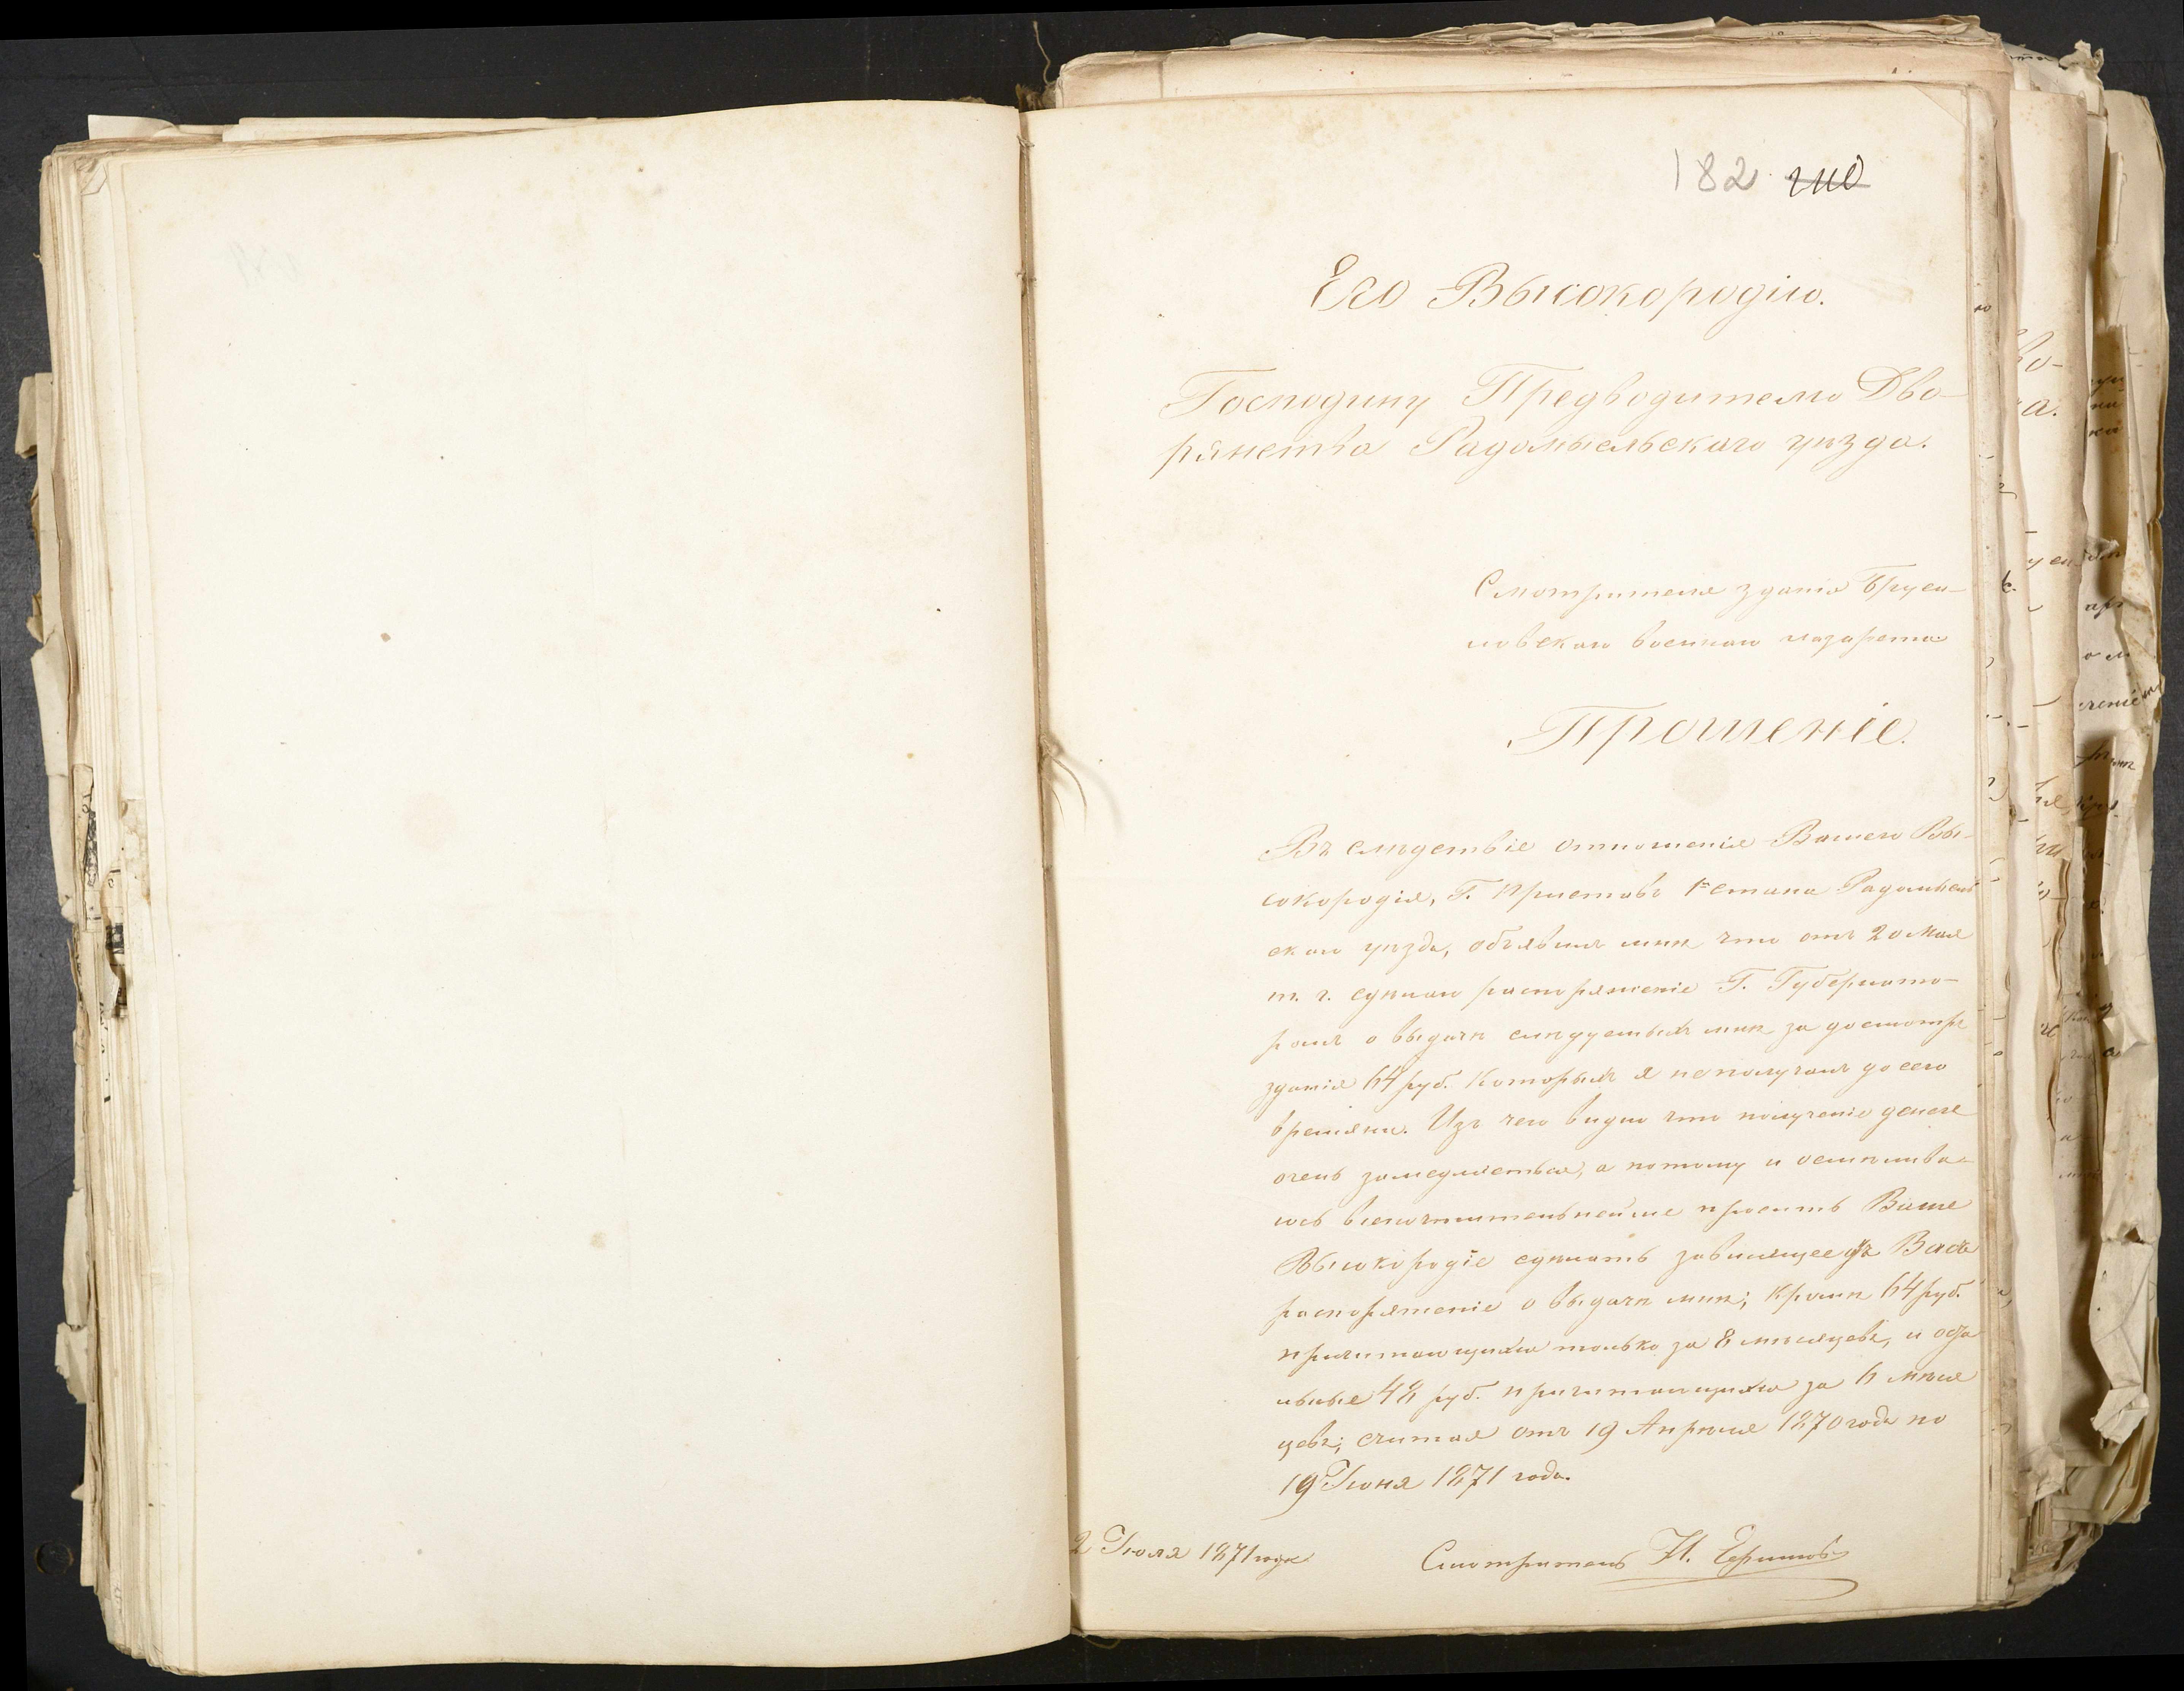 182
Его Высокородію.
Господину Предводителю Дво-
рянства Радомысльскаго уѣзда.
Смотрителя зданія Бруси-
ловскаго военнаго лазарета
Прошеніе.
Въ слѣдствіе отношенія Вашего Вы-
сокородія, Г. Приставъ 1º стана Радомысль
скаго уѣзда, объявилъ мнѣ что отъ 20 Мая
т. г. сдѣлано распоряженіе Г. Губернато-
ромъ о выдачѣ слѣдуемыхъ мнѣ за досмотръ
зданія 64 руб. Которыхъ я неполучалъ до сего
времяни. Изъ чего видно что полученіе денегъ
очень замедляеться, а потому и осмѣлива-
юсь всепочтительнейше просить Ваше
Высокородіе сдѣлать зависящее отъ Васъ
распоряженіе о выдачѣ мнѣ; Кромѣ 64 руб.
причитающихся только за 8 мѣсяцевъ, и оста
льные 48 руб. причитающихся за 6 мѣся
цевъ; считая отъ 19 Апрѣля 1870 года по
19 Іюня 1871 года.
2 Іюля 1871 года
Смотритель И. Ефимовъ